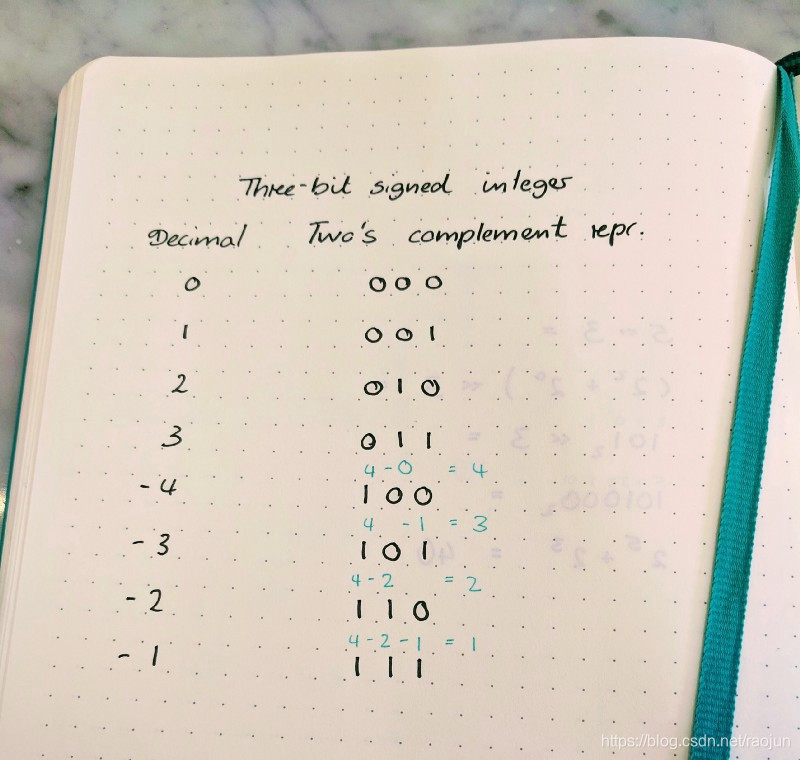 Three-bit signed integer
Decimal Two's complement repr.
0 000
1 001
2 010
3 011
4-0 = 4
-4 100
4 -1 = 3
-3 101
4-2 = 2
-2 110
4-2-1 = 1
-1 111
https://blog.csdn.net/raojun